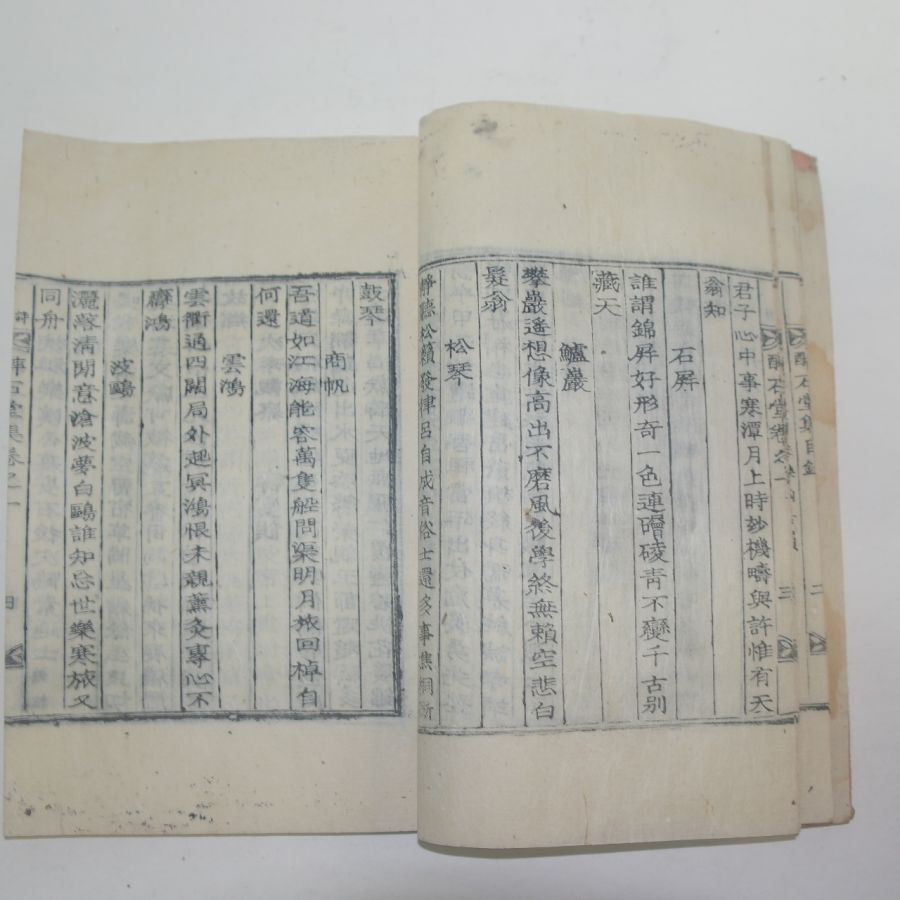 君子心中事寒潭月上時玅機疇與許惟有天
翁知
石屏
誰謂錦屛好形奇一色連磳碐靑不變千古别
藏天
鱸巖
攀巖遙想像高出不磨風後學終無賴空悲白
髮翁
松琴
靜聽松籟發律呂自成音俗士還多事焦桐所
鼓琴
商帆
吾道如江海能容萬隻船問渠明月旅回棹自
何還
雲鴻
雲衢通四闊局外起冥鴻恨未親薰灸專心不
射鴻
波鷗
灑落淸閒意滄波夢白鷗誰知忘世樂寒旅又
同舟
石堂集卷之一